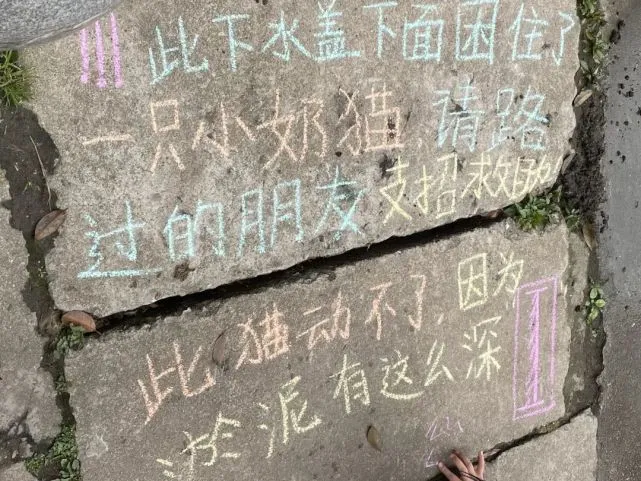 !!! 此下水盖下面困住了
一只小奶猫,请路
过的朋友支招救助!
此猫动不了,因为
淤泥有这么深